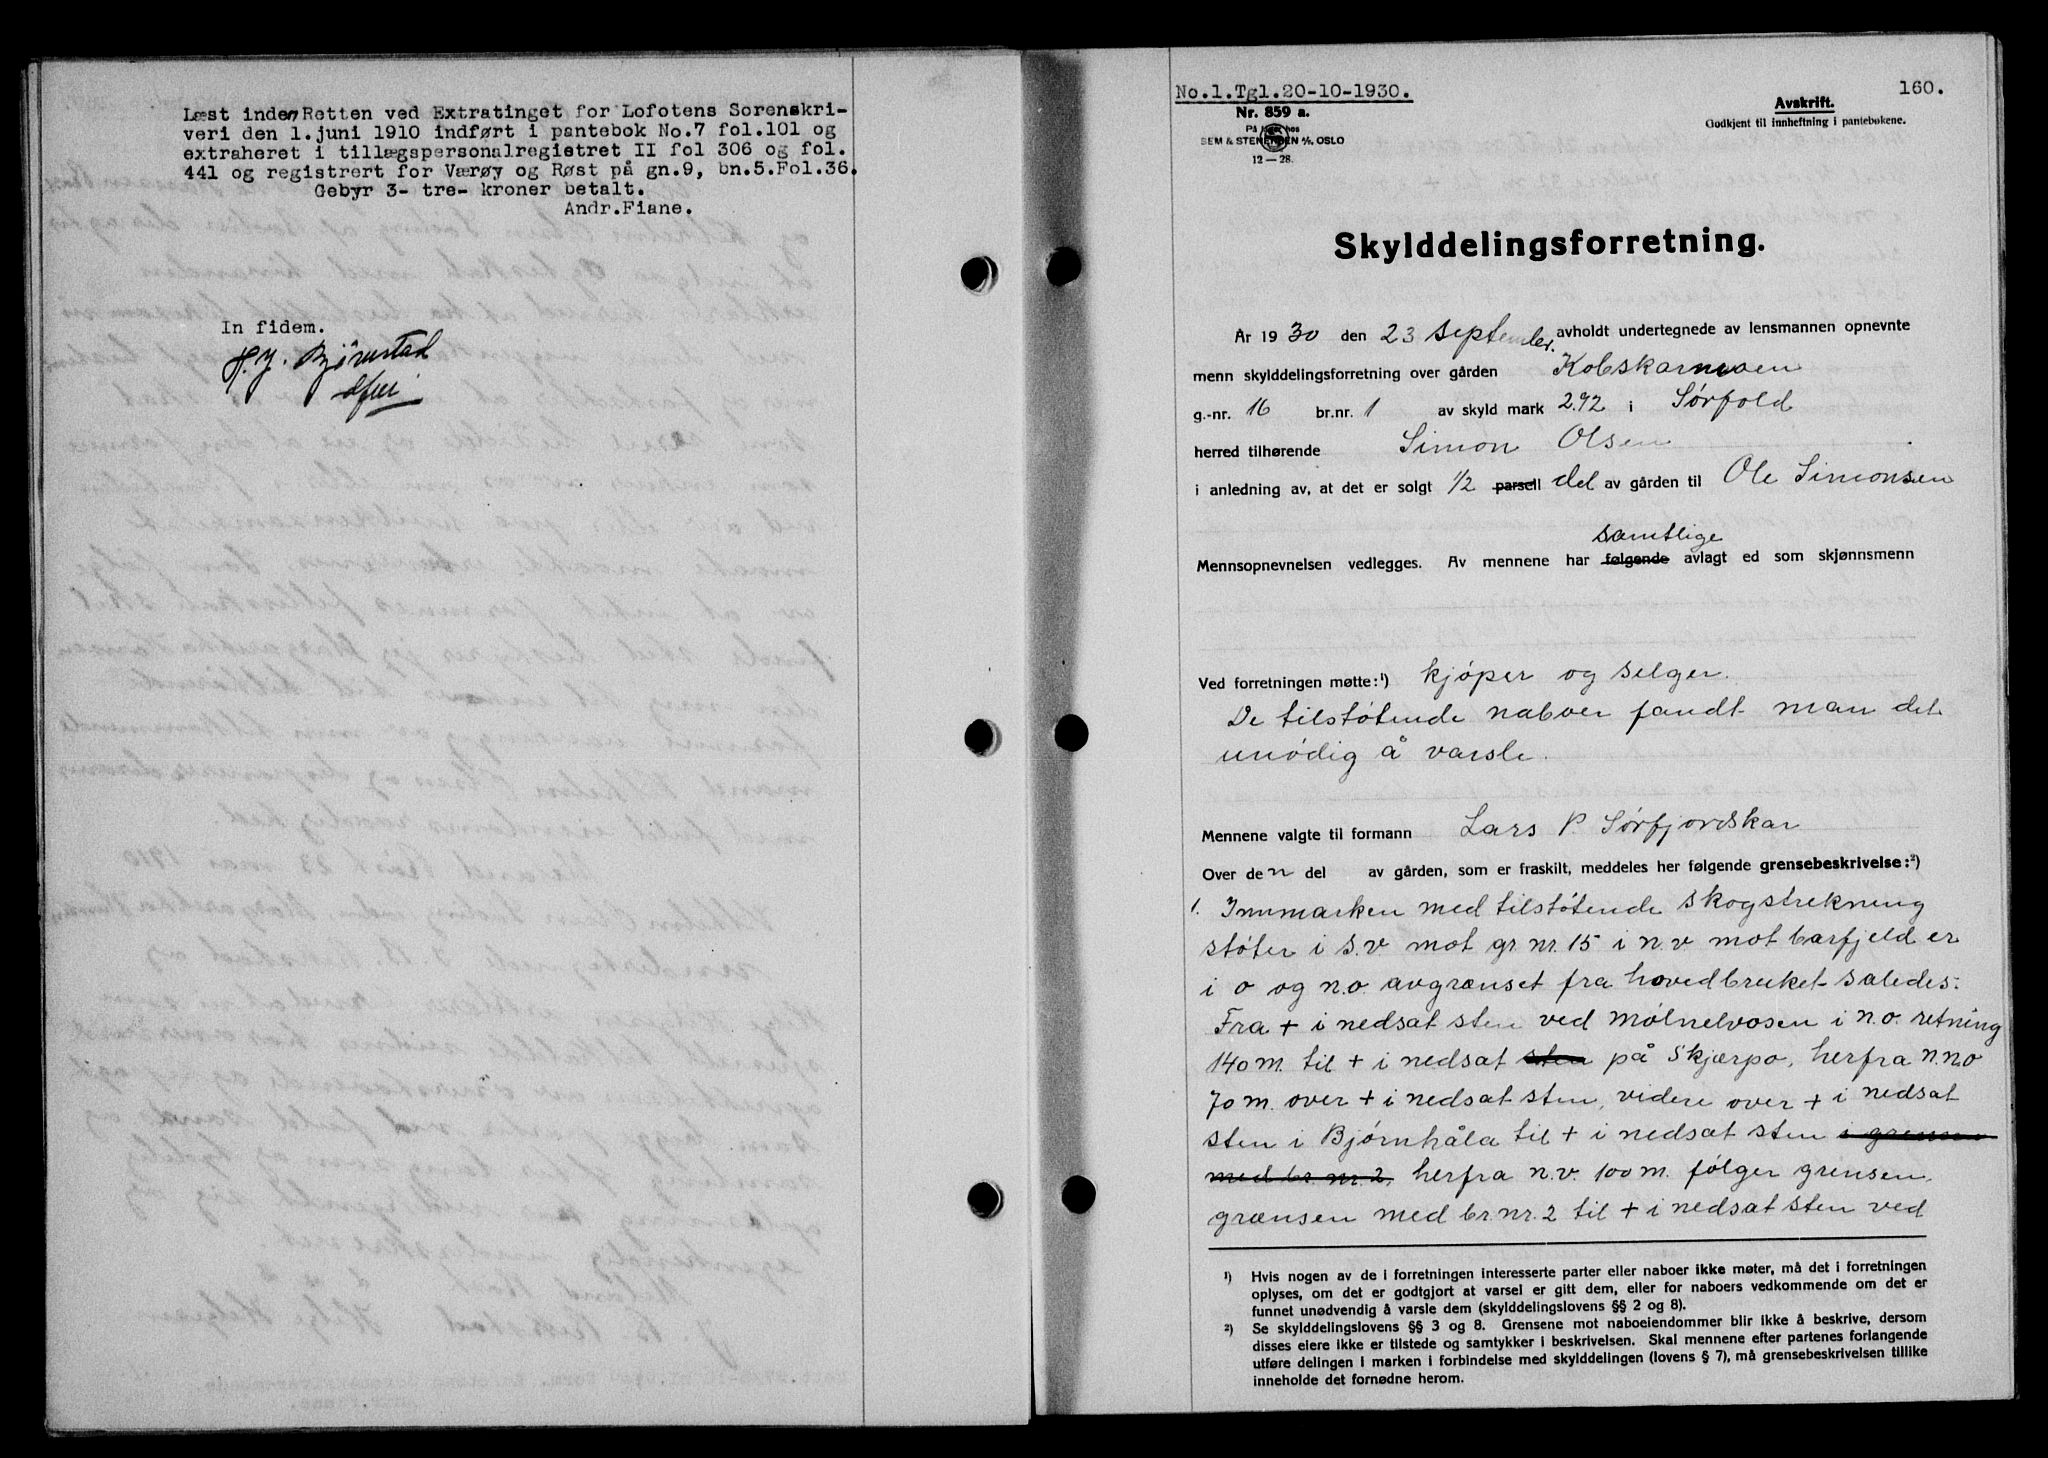 Læst inden Retten ved Extratinget for Lofotens Sorenskri-
veri den 1.juni 1910 indført i pantebok No.7 fol.101 og
extraheret i tillægspersonalregistret II fol 306 og fol.
441 og registrert for Værøy og Røst på gn.9, bn.5.Fol.36.
Gebyr 3- tre- kroner betalt.
Andr.Fiane.
In fidem.
H.J. Bjørnstad
No.1.Tgl.20-10-1930.
160.
Nr. 859 a.
På lager hos
SEM & STENERSEN A/S. OSLO
12—28.
Avskrift.
Godkjent til innheftning i pantebøkene.
Skylddelingsforretning.
År 1930 den 23 september. avholdt undertegnede av lensmannen opnevnte
menn skylddelingsforretning over gården Kobskarmoen
g.-nr. 16 br.nr. 1 av skyld mark 2.92 i Sørfold
herred tilhørende Simon Olsen
i anledning av, at det er solgt 1/2 parsell del av gården til Ole Simonsen
samtlige
Mennsopnevnelsen vedlegges. Av mennene har følgende avlagt ed som skjønnsmenn
Ved forretningen møtte:¹) kjøper og selger.
De tilstøtende naboer fandt man det
unødig å varsle.
Mennene valgte til formann Lars P. Sørfjordskar
Over den del av gården, som er fraskilt, meddeles her følgende grensebeskrivelse:²)
1. Innmarken med tilstøtende skogstrekning
støter i s.v mot gr nr. 15 i n.v mot barfjeld er
i o og n.o. avgrænset fra hovedbruket saledes:
Fra + i nedsat sten ved Mølnelvosen i n.o. retning
140 m. til + i nedsat sten på Skjærpo, herfra n.n.o
70 m. over + i nedsat sten, videre over + i nedsat
sten i Bjørnhåla til + i nedsat sten i grensen
med br. nr. 2, herfra n.v. 100 m. følger grensen
grænsen med br. nr. 2 til + i nedsat sten ved
¹) Hvis nogen av de i forretningen interesserte parter eller naboer ikke møter, må det i forretningen
oplyses, om det er godtgjort at varsel er gitt dem, eller for naboers vedkommende om det er
funnet unødvendig å varsle dem (skylddelingslovens §§ 2 og 8).
²) Se skylddelingslovens §§ 3 og 8. Grensene mot naboeiendommer blir ikke å beskrive, dersom
disses eiere ikke er tilstede og samtykker i beskrivelsen. Skal mennene efter partenes forlangende
utføre delingen i marken i forbindelse med skylddelingen (lovens § 7), må grensebeskrivelsen tillike
inneholde det fornødne herom.